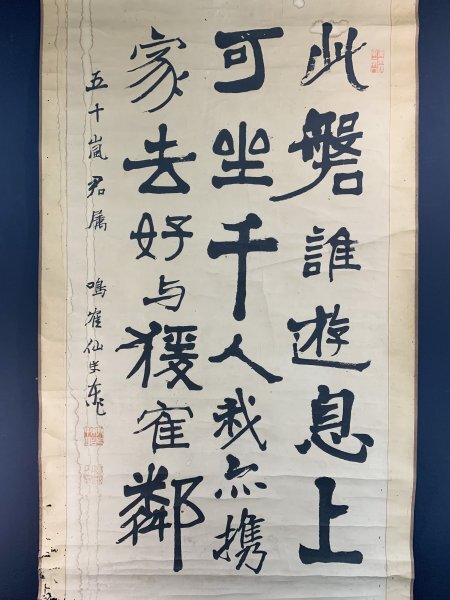 此磐誰遊息上
可坐千人我亦携
家去好与猨寉鄰
五十嵐君属 鳴寉仙史